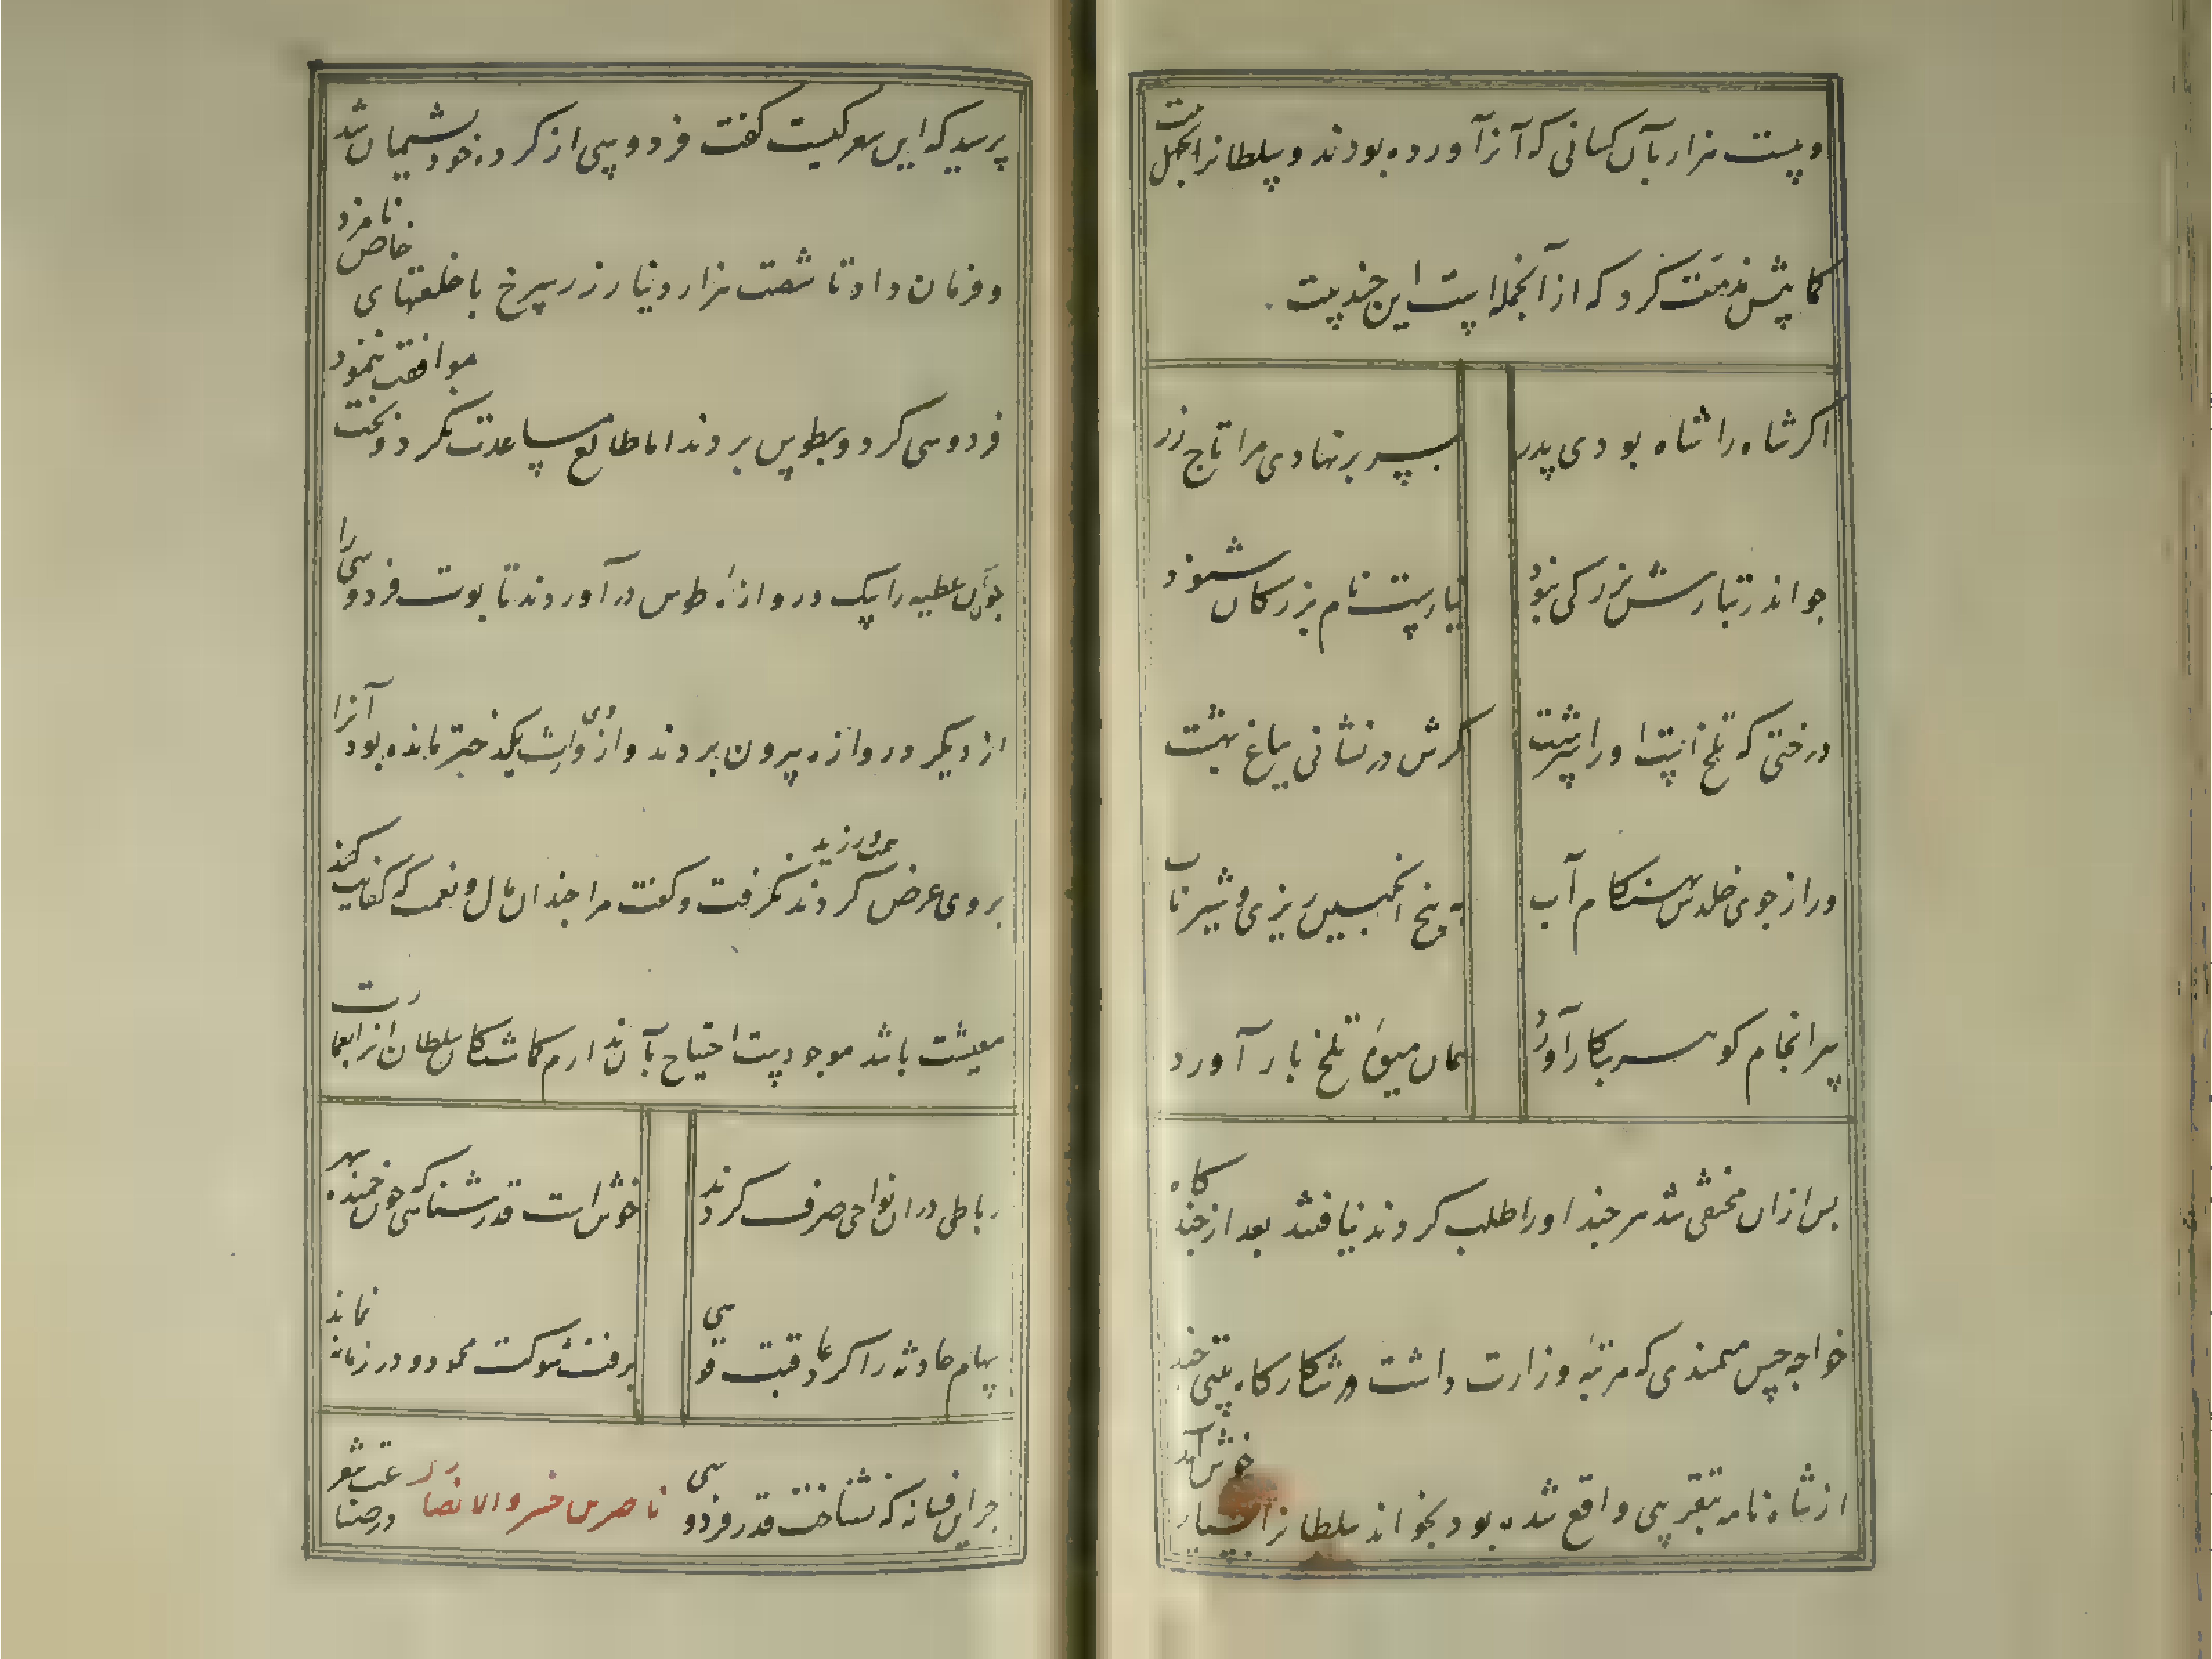 و بیست هزار بآن کسانی که آنرا آورده بودند و سلطانرا بچهل بیت
کما بیش مذمّت کرد که از آنجمله است این چند بیت
اگر شاه را شاه بودی پدر بسر بر نهادی مرا تاج زر
چو اندر تبارش بزرگی نبود نیارست نام بزرگان شنود
درختی که تلخ است او را سرشت گرش در نشانی بباغ بهشت
ور از جوی خلدش بهنگام آب به بیخ انگبین ریزی و شیر ناب
سرانجام گوهر بکار آورد همان میوهٔ تلخ بار آورد
پس ازان مختفی شد هر چند او را طلب کردند نیافتند بعد از چند گاه
خواجه حسن میمندی که مرتبهٔ وزارت داشت در شکارگاه بیتی چند
از شاه نامه بتقریبی واقع شده بود بخواند سلطانرا بسیار خوش آمد
پرسید که این شعر کیست گفت فردوسی از کرده خود پشیمان شد
و فرمان داد تا شصت هزار دینار زر سرخ با خلعتهای خاص نامزد
فردوسی کرد و بطوس بردند اما طالع مساعدت نکرد و بخت موافقت ننمود
چون آن عطیه را بیک دروازهٔ طوس در آوردند تابوت فردوسی را
از دیگر دروازه بیرون بردند و از وی وارث یک دختر مانده بود آنرا
بر وی عرض کردند همت ورزید نگرفت و گفت مرا چندان مال و نعمت که کفایت کند
معیشت باشد موجودست احتیاج بآن ندارم گماشتگان سلطان آنرا بعمارت
رباطی دران نواحی صرف کردند خوش است قدر شناسی که چون خمیده سپهر
سهام حادثه را کرد عاقبت قوسی برفت شوکت محمود و در زمانه نماند
جز این فسانه که نشناخت قدر فردوسی ناصر بن خسرو الانصاری در صناعت شعر